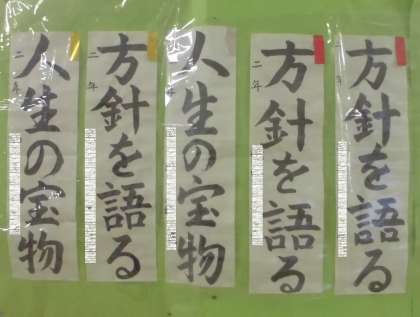 方針を語る
二年
方針を語る
二年
人生の宝物
年
方針を語る
二年
人生の宝物
二年